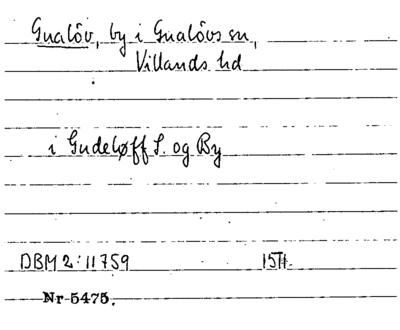 Gualöv, by i Gualövs sn,
Villands hd
i Gudeløff S. og By
DBM 2: II 759
Nr 5475.